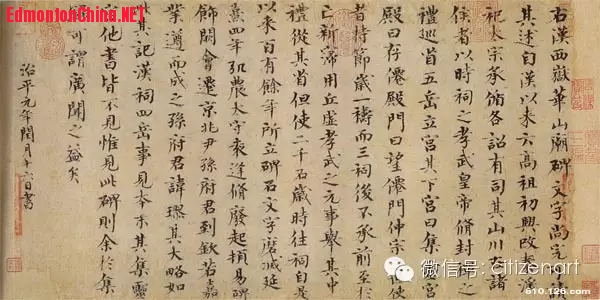 EdmontonChina.NET
右漢西嶽華山廟碑文字尚完
其述自漢以來云高祖初興改秦淫
祀太宗承循各詔有司其山川在諸
侯者以時祠之孝武皇帝脩封禪之
禮巡省五岳立宮其下宮曰集
殿曰存僊殿門曰望僊門仲宗 使
者持節歲一禱而三祠後不承前至于
亡新寖用丘虛孝武之元事舉其中
禮從其省但使二千石歲時往祠自是
以來百有餘年所立碑石文字磨滅延
熹四年弘農太守袁逢脩廢起頓易碑
飾闕會遷京兆尹孫府君到欽若嘉
業遵而成之孫府君諱璆其大略如
此其記漢祠四岳事見本末其集靈
宮他書皆不見惟見此碑則余於集
錄可謂廣聞之益矣
治平元年閏月十六日書
微信号: citizenart
610.126.com